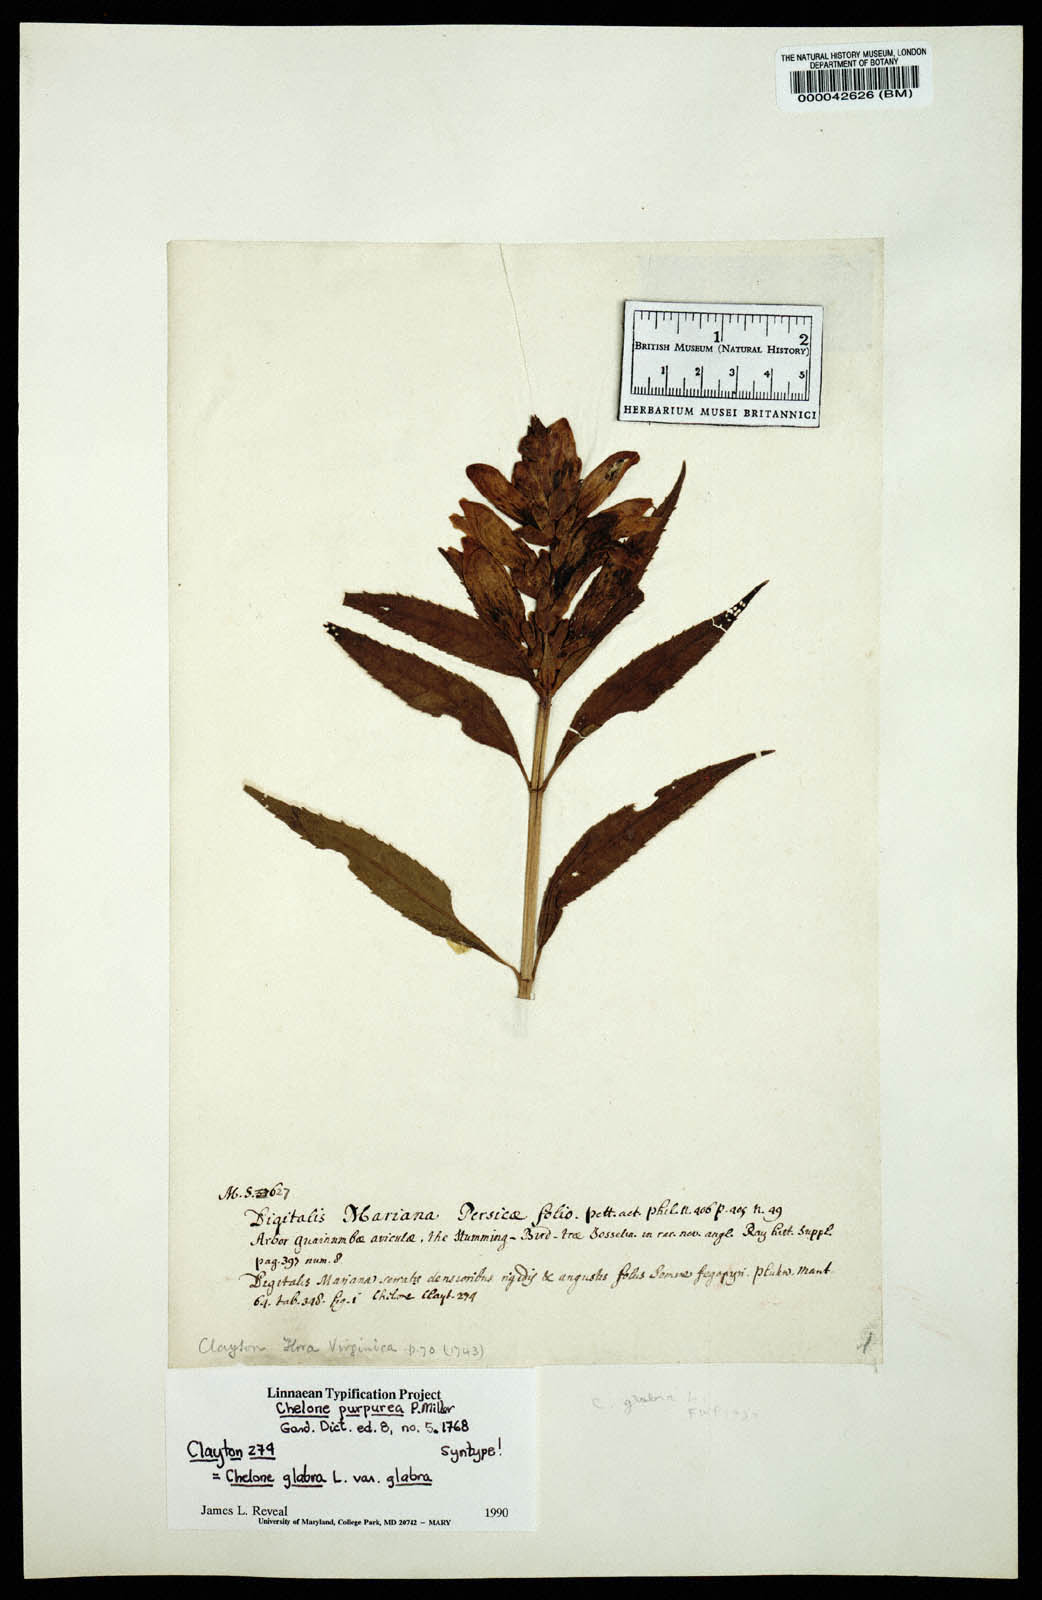 THE NATURAL HISTORY MUSEUM, LONDON
DEPARTMENT OF BOTANY
000042626 (BM)
1 2
BRITISH MUSEUM (NATURAL HISTORY)
1 2 3 4 5
HERBARIUM MUSEI BRITANNICI
M.S. 627
Digitalis Mariana Persicæ folio. pett. act. phil. n. 406 p. 405 n. 49
Arbor quainumbæ aviculæ, the Humming-Bird-tree in rar. nov. angl. Ray hist. Suppl.
pag. 397 num. 8.
Digitalis Mariana serratis densioribus rigidis & angustis foliis fegopyri. Plukn. Mant
64. tab. 348. fig. 1 Chelone Clayt. 274
Clayton Flora Virginica p. 70. (1743)
C. glabra L.
Linnaean Typification Project
Chelone purpurea P. Miller
Gard. Dict. ed. 8, no. 5. 1768
Clayton 274 Syntype!
= Chelone glabra L. var. glabra
James L. Reveal 1990
University of Maryland, College Park, MD 20742 – MARY